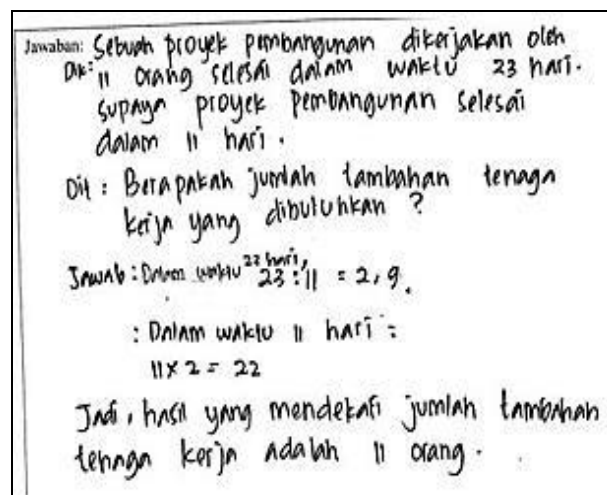 Jawaban: Sebuah proyek pembangunan dikerjakan oleh
Dik: 11 orang selesai dalam waktu 23 hari.
supaya proyek pembangunan selesai
dalam 11 hari.
Dit : Berapakah jumlah tambahan tenaga
kerja yang dibutuhkan ?
Jawab : Dalam waktu 23 hari,
23 : 11 = 2,9.
: Dalam waktu 11 hari =
11 x 2 = 22
Jadi, hasil yang mendekati jumlah tambahan
tenaga kerja adalah 11 orang.